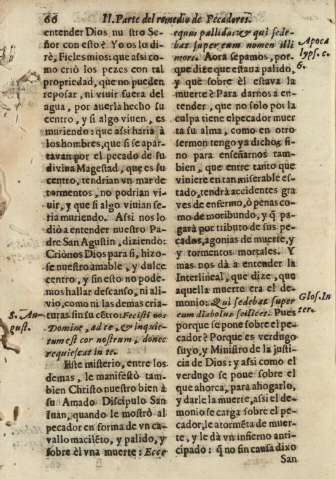 66 II. Parte del remedio de Pecadores.
entender Dios nuestro Se-
ñor con esto? Yo os lo di-
rè, Fieles mios: que assi co-
mo criò los pezes con tal
propriedad, que no pueden
reposar, ni viuir fuera del
agua, por auerla hecho su
centro, y si algo viuen, es
muriendo: que assi haria à
los hombres, que si se apar-
tavan por el pecado de su
divina Magestad, que es su
centro, tendrian vn mar de
tormentos, no podrian vi-
uir, y que si algo viuian se-
ria muriendo. Assi nos lo
diò à entender nuestro Pa-
dre San Agustin, diziendo:
Criònos Dios para si, hizo-
se nuestro amable, y dulce
centro, y sin esto no pode-
mos hallar descanso, ni ali-
vio, como ni las demas cria-
turas sin su cẽtro: Fecisti nos
Domine, ad te, & inquie-
tum est cor nostrum, donec
requiescat in te.
Este misterio, entre los
demas, le manifestò tam-
bien Christo nuestro bien à
su Amado Discipulo San
Iuan, quando le mostrò al
pecador en forma de vn ca-
vallo macilẽto, y palido, y
sobre èl vna muerte: Ecce
S. Au-
gust.
equus pallidus: & qui sede-
bat super eum nomen illi
mors. Aora sepamos, por-
que dize que estaua palido,
y que sobre èl estava la
muerte? Para darnos a en-
tender, que no solo por la
culpa tiene el pecador muer
ta su alma, como en otro
sermon tengo ya dicho; si-
no para enseñarnos tam-
bien, que entre tanto que
viniere en tan miserable es-
tado, tendrà accidentes gra
ves de enfermo, ò penas co-
mo de moribundo, y q̃ pa-
garà por tributo de sus pe-
cados, agonias de muerte, y
y tormentos mortales. Y
mas nos dà a entender la
Interlineal, que dize, que
aquella muerte era el de-
monio: Qui sedebat super
eum diabolus scilicet. Pues
porque se pone sobre el pe-
cador? Porque es verdugo
suyo, y Ministro de la justi-
cia de Dios: y assi como el
verdugo se pone sobre el
que ahorca, para ahogarlo,
y darle la muerte, assi el de-
monio se carga sobre el pe-
cador, le atormẽta de muer-
te, y le dà vn infierno anti-
cipado: q̃ no sin causa dixo
San
Apoca
lyps. c.
6.
Glos. In
ter.